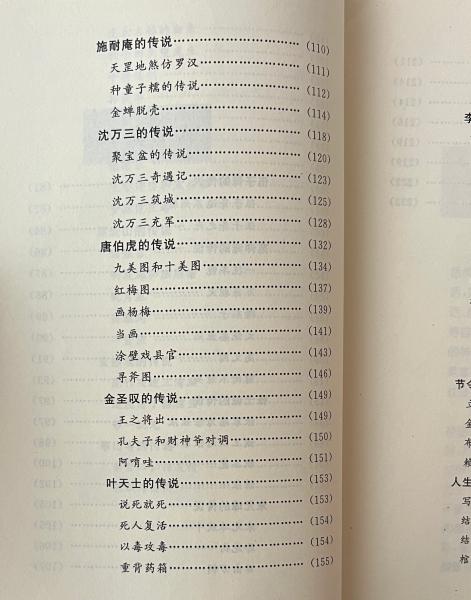 施耐庵的传说……………………………(110)
天罡地煞仿罗汉…………………………(111)
种童子糯的传说…………………………(112)
金蝉脱壳…………………………………(114)
沈万三的传说……………………………(118)
聚宝盆的传说……………………………(120)
沈万三奇遇记……………………………(123)
沈万三筑城………………………………(125)
沈万三充军………………………………(128)
唐伯虎的传说……………………………(132)
九美图和十美图…………………………(134)
红梅图……………………………………(137)
画杨梅……………………………………(139)
当画………………………………………(141)
涂壁戏县官………………………………(143)
寻斧图……………………………………(146)
金圣叹的传说……………………………(149)
王之将出…………………………………(149)
孔夫子和财神爷对调……………………(150)
阿唷哇……………………………………(151)
叶天士的传说……………………………(153)
说死就死…………………………………(153)
死人复活…………………………………(154)
以毒攻毒…………………………………(154)
重背药箱…………………………………(155)
李
节令
人生
写
结
结
棺